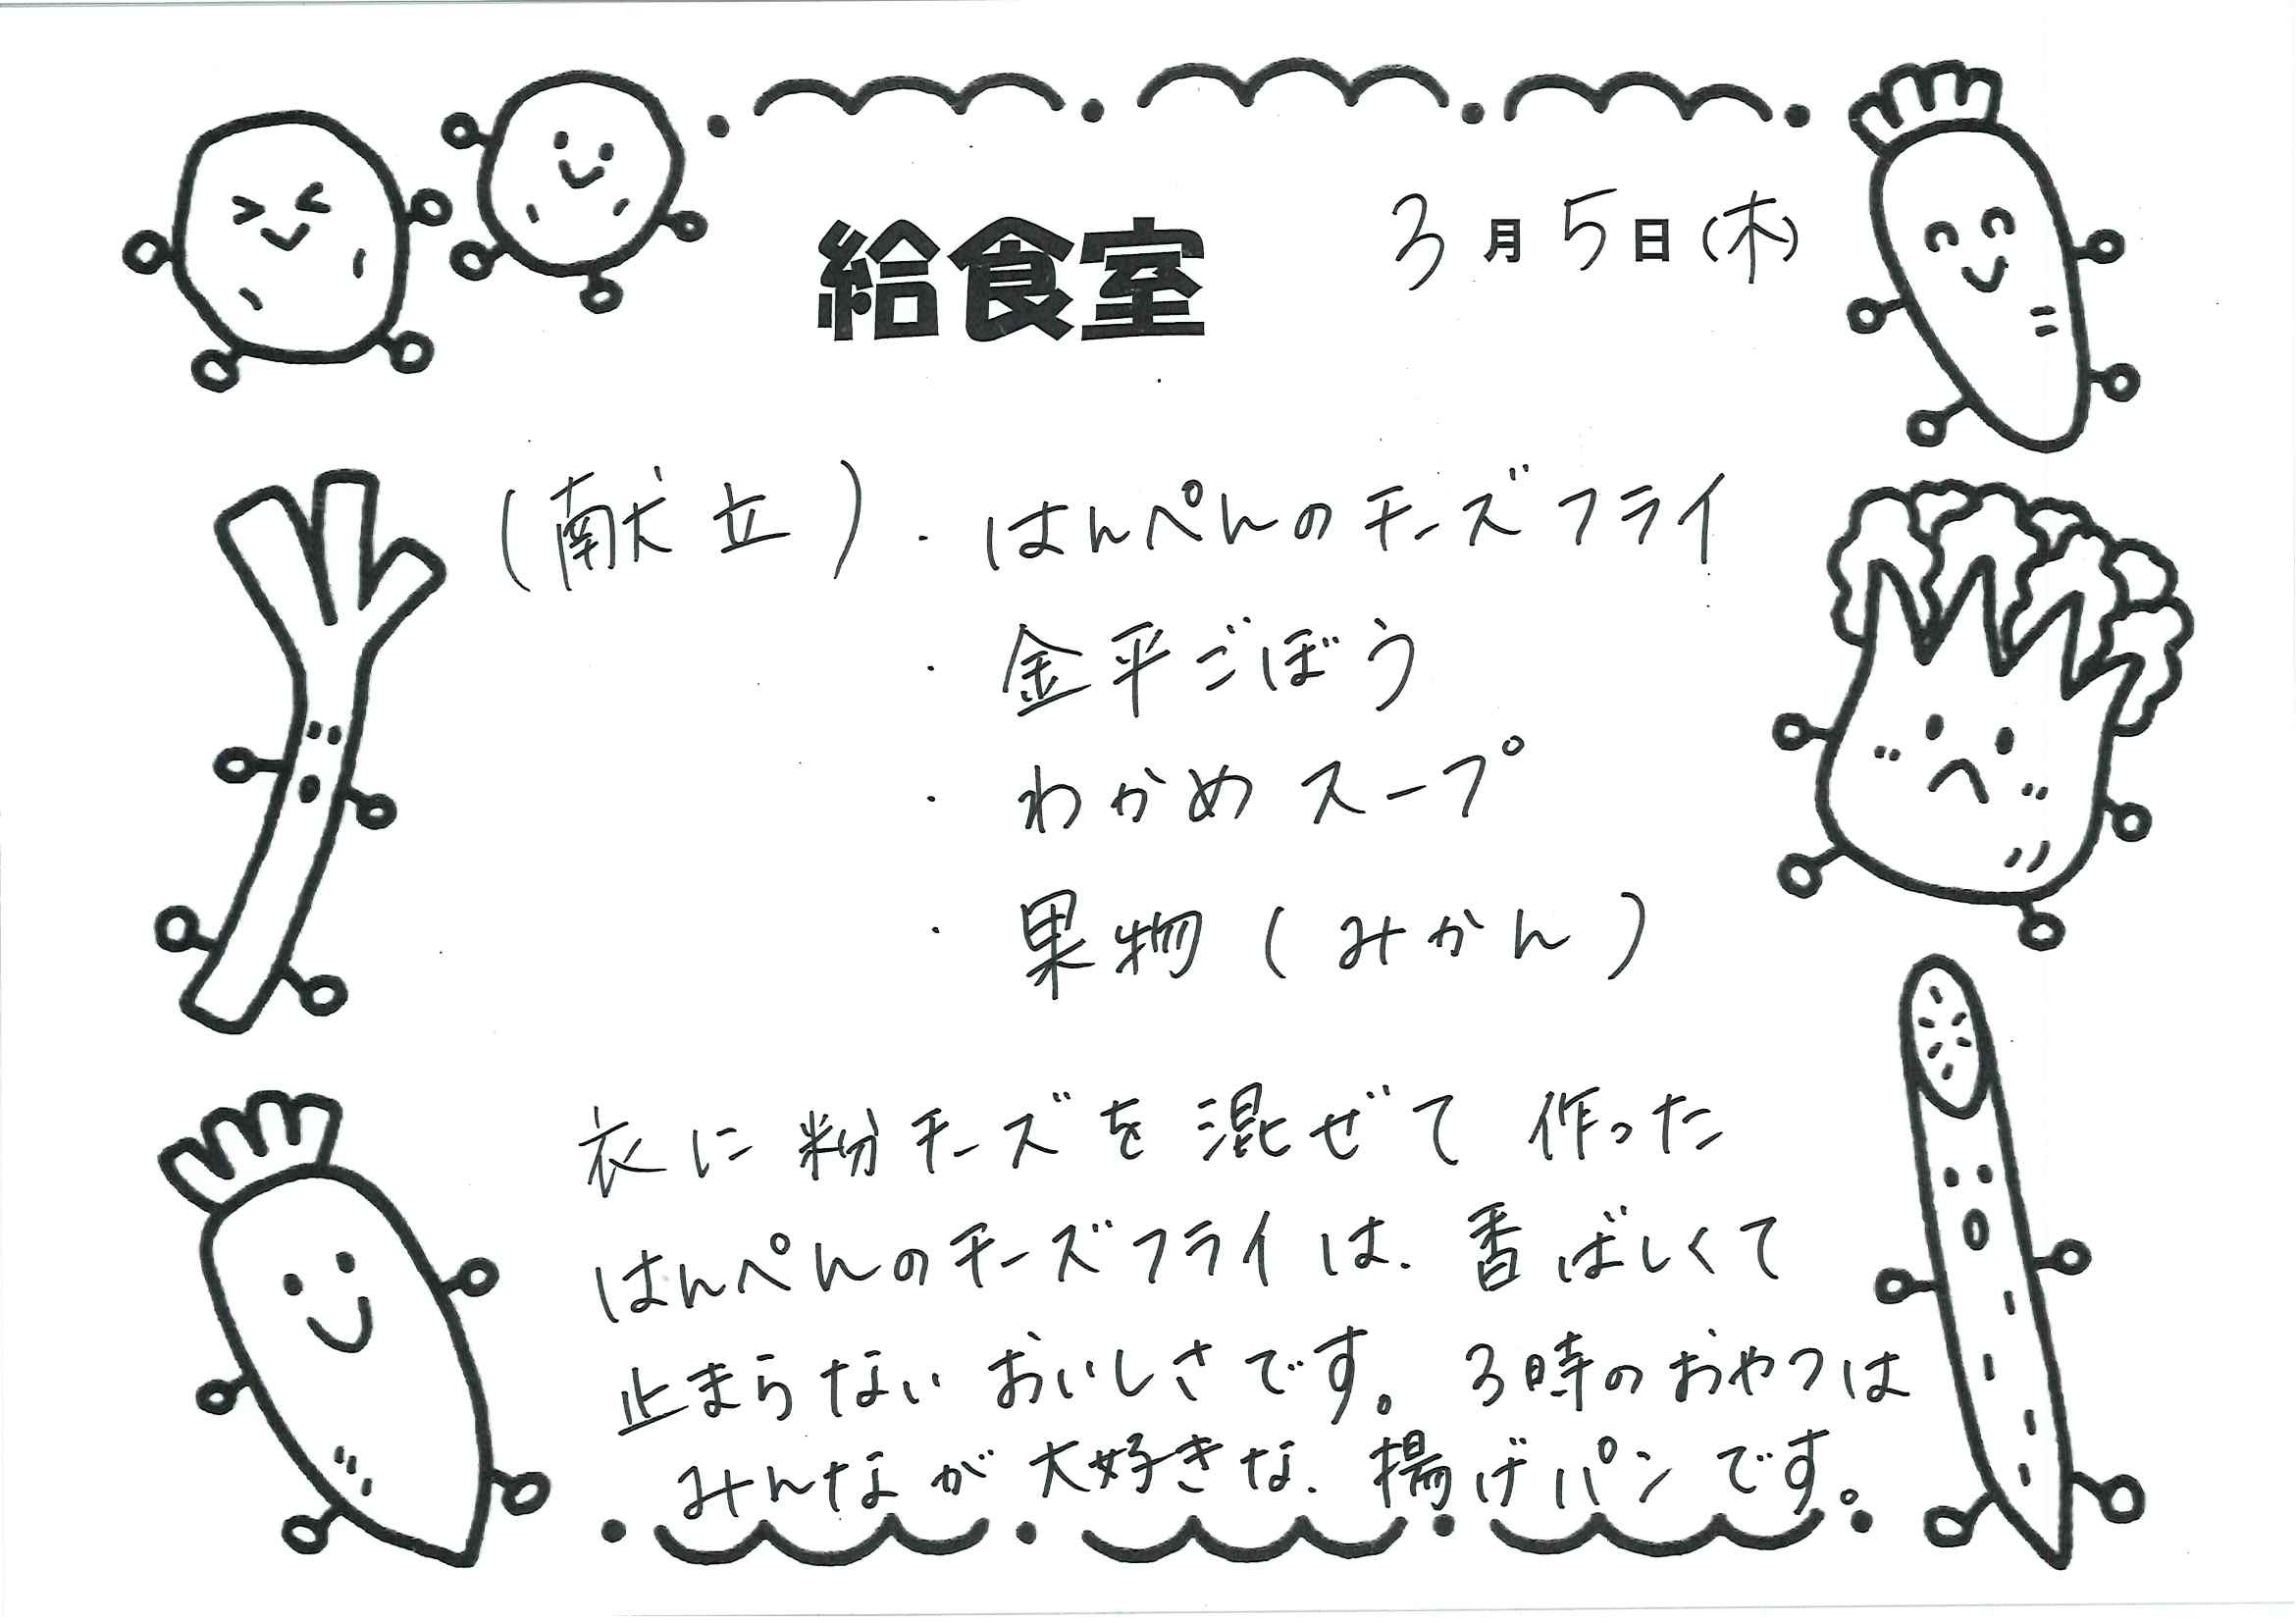 給食室 3月5日(木)
(献立)・はんぺんのチーズフライ
・金平ごぼう
・わかめスープ
・果物(みかん)
衣に粉チーズを混ぜて作った
はんぺんのチーズフライは、香ばしくて
止まらないおいしさです。3時のおやつは
みんなが大好きな、揚げパンです。